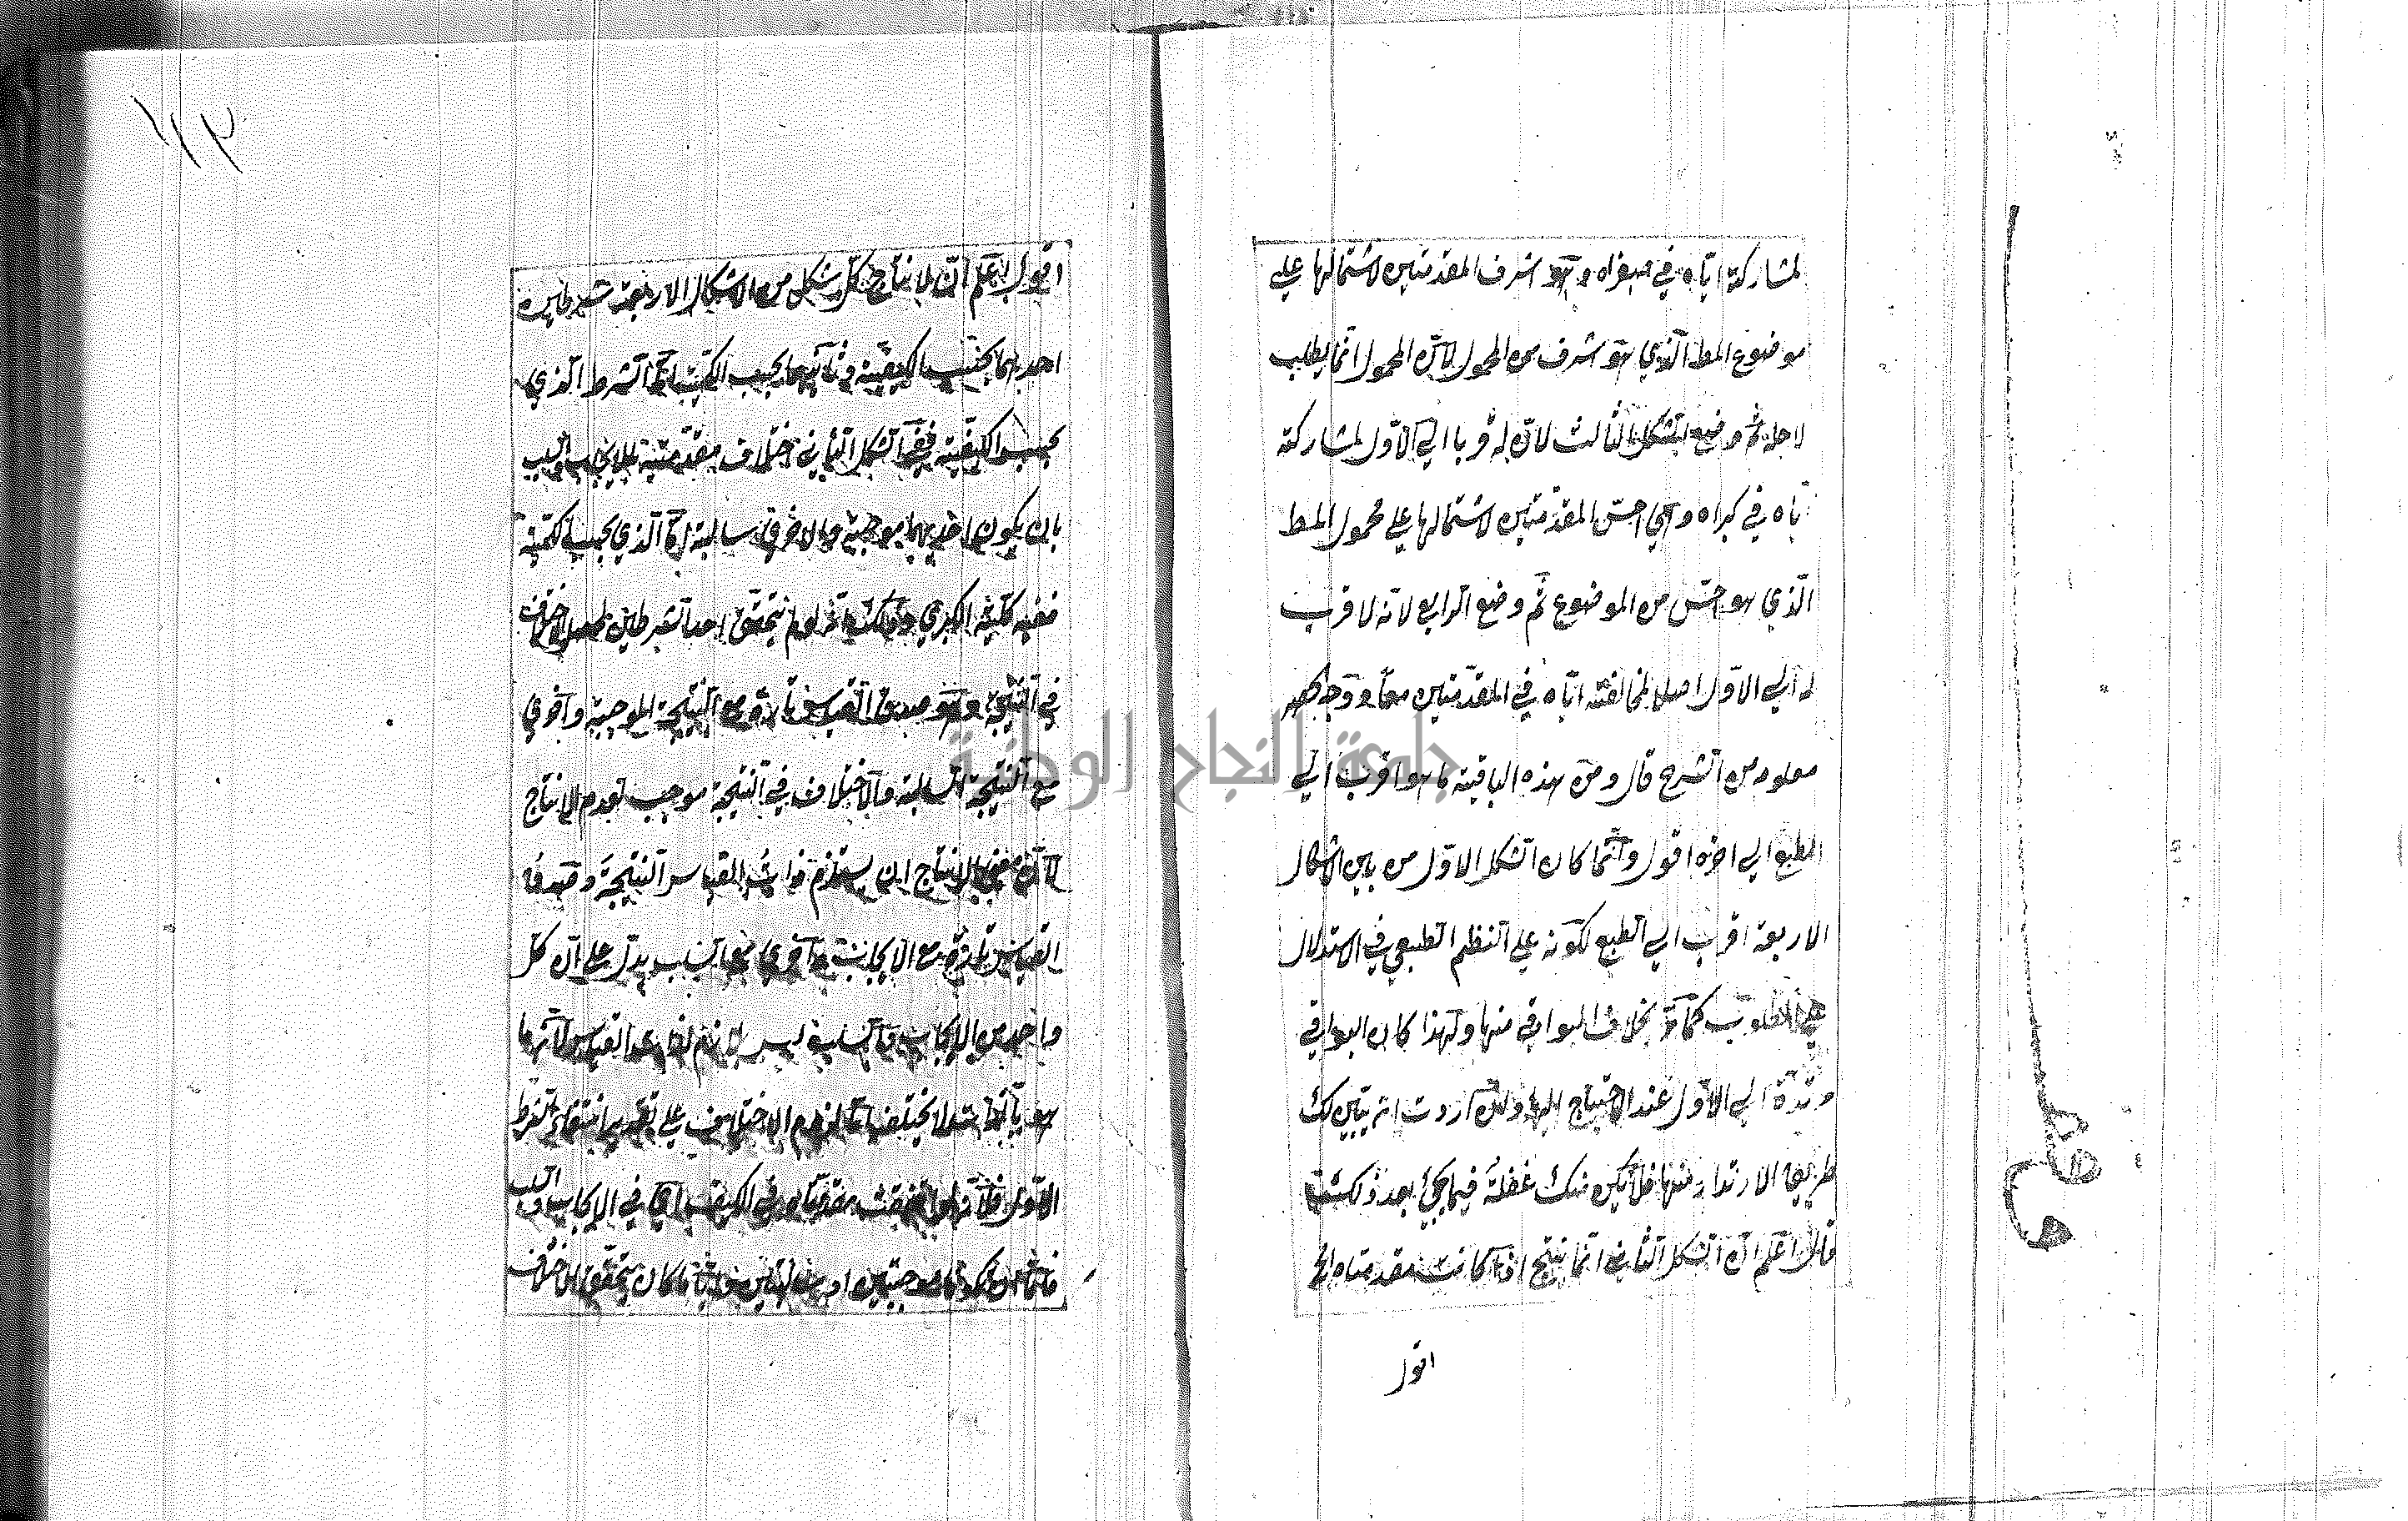 لمشاركة اياه في صغراه وهي اشرف المقدمتين لاشتمالها علي
موضوع المط الذي هو شرف من المحمول لان المحمول انما يطلب
لاجله ثم وضع الشكل الثالث لان له قربا الي الاول لمشاركة
اياه في كبراه وهي اخس المقدمتين لاشتمالها علي محمول المط
الذي هو اخس من الموضوع ثم وضع الرابع لانه لا قرب
له الي الاول اصلا لمخالفته اياه في المقدمتين معا ووجه
معلوم من الشرح قال ومن هذه الباقية ما هو اقرب الي
الطبع الي اخره اقول وانما كان الشكل الاول من بين الاشكال
الاربعة اقرب الي الطبع لكونه علي النظم الطبيعي في الاستدلال
علي المطلوب كما مر بخلاف البواقي منها ولهذا كان البواقي
مرتدة الي الاول عند الاحتياج اليها ولئن اردت ان يتبين لك
طريق الارتداد منها فلا يكن منك غفلة فيما يجيئ بعد
قال اعلم ان الشكل الثاني انما ينتج اذا كانت مقدمتاه الخ
اقول
١١٢
اقول اعلم ان لانتاج كل شكل من الاشكال الاربعة شرطين
احدهما بحسب الكيفية وثانيهما بحسب الكمية اما الشرط الذي
بحسب الكيفية ففي الشكل الثاني اختلاف مقدمتيه بالايجاب والسلب
بان يكون احديهما موجبة والاخري سالبة اما الذي بحسب الكمية
ففيه كلية الكبري وذلك لانه لو لم يتحقق احد الشرطين يحصل الاختلاف
في النتيجة وهو صدق القياس تارة مع النتيجة الموجبة واخري
مع النتيجة السالبة والاختلاف في النتيجة موجب لعدم الانتاج
لان معني الانتاج ان يستلزم ذات القياس النتيجة وصدق
القياس تارة مع الايجاب واخري مع السلب يدل علي ان كل
واحد من الايجاب والسلب ليس بلازم القياس لان ما
هو بالذات لا يختلف اما لزوم الاختلاف علي تقدير انتفاء الشرط
الاول فلانه لو اتفقت مقدمتاه في الكيف اي في الايجاب والسلب
فاما ان تكونا موجبتين او سالبتين وايا ما كان يتحقق الاختلاف
جامعة النجاح الوطنية